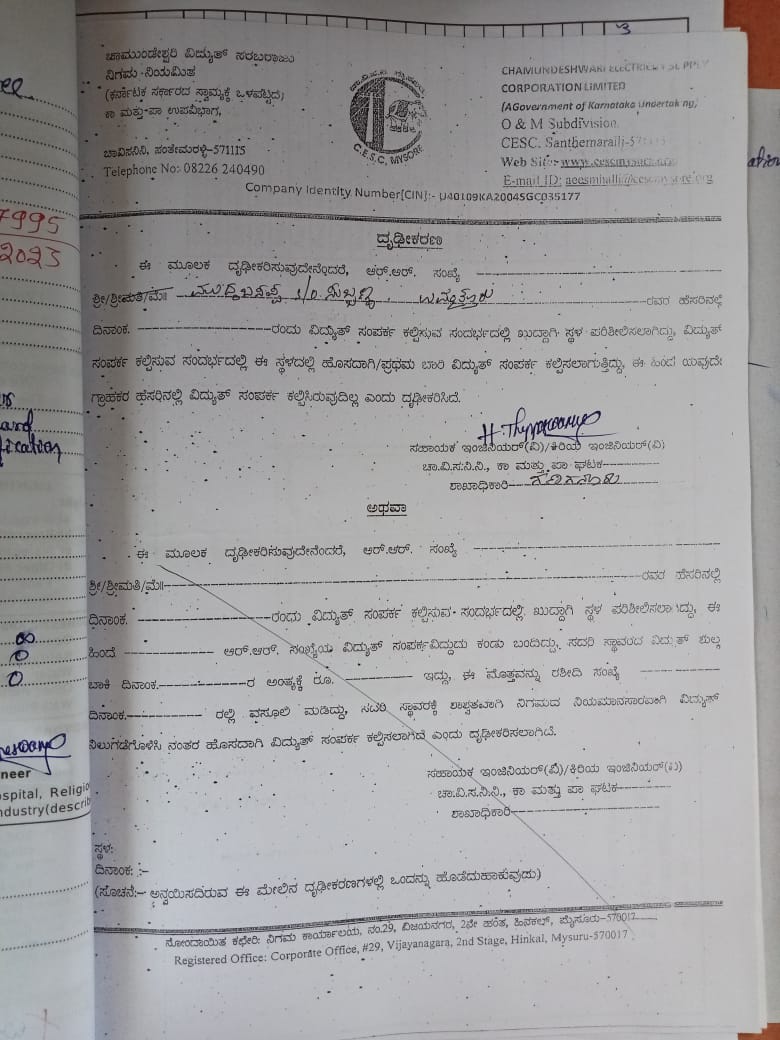 ಚಾಮುಂಡೇಶ್ವರಿ ವಿದ್ಯುತ್ ಸರಬರಾಜು
ನಿಗಮ-ನಿಯಮಿತ
(ಕರ್ನಾಟಕ ಸರ್ಕಾರದ ಸ್ವಾಮ್ಯಕ್ಕೆ ಒಳಪಟ್ಟಿದೆ)
ಕಾ ಮತ್ತು-ಪಾ ಉಪವಿಭಾಗ,
ಚಾವಿಸನಿನಿ, ಸಂತೇಮರಳ್ಳಿ-571115
Telephone No: 08226 240490
C.E.S.C, MYSORE
CHAMUNDESHWARI ELECTRICITY SUPPLY
CORPORATION LIMITED
(AGovernment of Karnataka Undertaking)
O & M Subdivision
CESC. Santhemaralli-571115
Web Site:- www.cescmysore.org
E-mail ID: aeesmhalli@cescmysore.org
Company Identity Number[CIN]:- U40109KA2004SGC035177
ದೃಢೀಕರಣ
ಈ ಮೂಲಕ ದೃಢೀಕರಿಸುವುದೇನೆಂದರೆ, ಆರ್.ಆರ್. ಸಂಖ್ಯೆ
ಶ್ರೀ/ಶ್ರೀಮತಿ/ಮೆ॥ S/O ರವರ ಹೆಸರಿನಲ್ಲಿ
ದಿನಾಂಕ. ರಂದು ವಿದ್ಯುತ್ ಸಂಪರ್ಕ ಕಲ್ಪಿಸುವ ಸಂದರ್ಭದಲ್ಲಿ ಖುದ್ದಾಗಿ ಸ್ಥಳ ಪರಿಶೀಲಿಸಲಾಗಿದ್ದು, ವಿದ್ಯುತ್
ಸಂಪರ್ಕ ಕಲ್ಪಿಸುವ ಸಂದರ್ಭದಲ್ಲಿ ಈ ಸ್ಥಳದಲ್ಲಿ ಹೊಸದಾಗಿ/ಪ್ರಥಮ ಬಾರಿ ವಿದ್ಯುತ್ ಸಂಪರ್ಕ ಕಲ್ಪಿಸಲಾಗುತ್ತಿದ್ದು, ಈ ಹಿಂದೆ ಯಾವುದೇ
ಗ್ರಾಹಕರ ಹೆಸರಿನಲ್ಲಿ ವಿದ್ಯುತ್ ಸಂಪರ್ಕ ಕಲ್ಪಿಸಿರುವುದಿಲ್ಲ ಎಂದು ದೃಢೀಕರಿಸಿದೆ.
ಸಹಾಯಕ ಇಂಜಿನಿಯರ್(ವಿ)/ಕಿರಿಯ ಇಂಜಿನಿಯರ್(ವಿ)
ಚಾ.ವಿ.ಸ.ನಿ.ನಿ., ಕಾ ಮತ್ತು ಪಾ ಘಟಕ
ಶಾಖಾಧಿಕಾರಿ
ಅಥವಾ
ಈ ಮೂಲಕ ದೃಢೀಕರಿಸುವುದೇನೆಂದರೆ, ಆರ್.ಆರ್. ಸಂಖ್ಯೆ
ಶ್ರೀ/ಶ್ರೀಮತಿ/ಮೆ॥ ರವರ ಹೆಸರಿನಲ್ಲಿ
ದಿನಾಂಕ. ರಂದು ವಿದ್ಯುತ್ ಸಂಪರ್ಕ ಕಲ್ಪಿಸುವ ಸಂದರ್ಭದಲ್ಲಿ ಖುದ್ದಾಗಿ ಸ್ಥಳ ಪರಿಶೀಲಿಸಲಾಗಿದ್ದು, ಈ
ಹಿಂದೆ ಆರ್.ಆರ್. ಸಂಖ್ಯೆಯ ವಿದ್ಯುತ್ ಸಂಪರ್ಕವಿದ್ದುದು ಕಂಡು ಬಂದಿದ್ದು, ಸದರಿ ಸ್ಥಾವರದ ವಿದ್ಯುತ್ ಶುಲ್ಕ
ಬಾಕಿ ದಿನಾಂಕ. ರ ಅಂತ್ಯಕ್ಕೆ ರೂ. ಇದ್ದು, ಈ ಮೊತ್ತವನ್ನು ರಶೀದಿ ಸಂಖ್ಯೆ
ದಿನಾಂಕ. ರಲ್ಲಿ ವಸೂಲಿ ಮಾಡಿದ್ದು, ಸದರಿ ಸ್ಥಾವರಕ್ಕೆ ಶಾಶ್ವತವಾಗಿ ನಿಗಮದ ನಿಯಮಾನುಸಾರವಾಗಿ ವಿದ್ಯುತ್
ನಿಲುಗಡೆಗೊಳಿಸಿ ನಂತರ ಹೊಸದಾಗಿ ವಿದ್ಯುತ್ ಸಂಪರ್ಕ ಕಲ್ಪಿಸಲಾಗಿದೆ ಎಂದು ದೃಢೀಕರಿಸಲಾಗಿದೆ.
ಸಹಾಯಕ ಇಂಜಿನಿಯರ್(ವಿ)/ಕಿರಿಯ ಇಂಜಿನಿಯರ್(ವಿ)
ಚಾ.ವಿ.ಸ.ನಿ.ನಿ., ಕಾ ಮತ್ತು ಪಾ ಘಟಕ
ಶಾಖಾಧಿಕಾರಿ
ಸ್ಥಳ:
ದಿನಾಂಕ: :-
(ಸೂಚನೆ:- ಅನ್ವಯಿಸದಿರುವ ಈ ಮೇಲಿನ ದೃಢೀಕರಣಗಳಲ್ಲಿ ಒಂದನ್ನು ಹೊಡೆದುಹಾಕುವುದು)
ನೋಂದಾಯಿತ ಕಛೇರಿ: ನಿಗಮ ಕಾರ್ಯಾಲಯ, ನಂ.29, ವಿಜಯನಗರ, 2ನೇ ಹಂತ, ಹಿನಕಲ್, ಮೈಸೂರು-570017
Registered Office: Corporate Office, #29, Vijayanagara, 2nd Stage, Hinkal, Mysuru-570017
7995
2023
neer
ospital, Religio
ndustry(describ